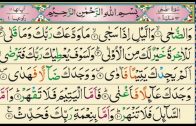 بِسْمِ اللهِ الرَّحْمٰنِ الرَّحِيْمِ
وَالضُّحٰى وَالَّيْلِ اِذَا سَجٰى مَا وَدَّعَكَ رَبُّكَ وَمَا قَلٰى
وَلَلْاٰخِرَةُ خَيْرٌ لَّكَ مِنَ الْاُوْلٰى وَلَسَوْفَ يُعْطِيْكَ رَبُّكَ فَتَرْضٰى
اَلَمْ يَجِدْكَ يَتِيْمًا فَاٰوٰى وَوَجَدَكَ ضَآلًّا فَهَدٰى
وَوَجَدَكَ عَآئِلًا فَاَغْنٰى فَاَمَّا الْيَتِيْمَ فَلَا تَقْهَرْ وَاَمَّا
السَّآئِلَ فَلَا تَنْهَرْ وَاَمَّا بِنِعْمَةِ رَبِّكَ فَحَدِّثْ